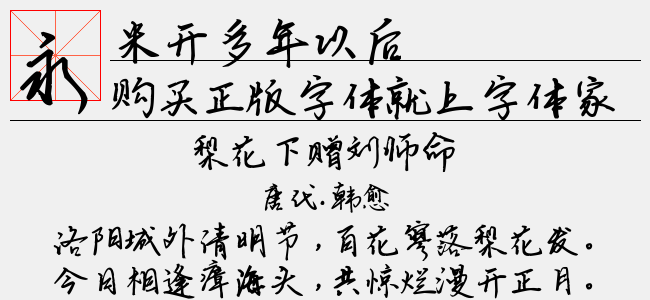 永
米开多年以后
购买正版字体就上字体家
梨花下赠刘师命
唐代·韩愈
洛阳城外清明节，百花寥落梨花发。
今日相逢瘴海头，共惊烂漫开正月。